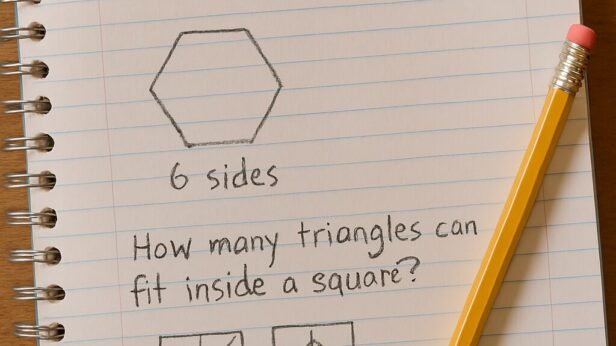 6 sides
How many triangles can
fit inside a square?